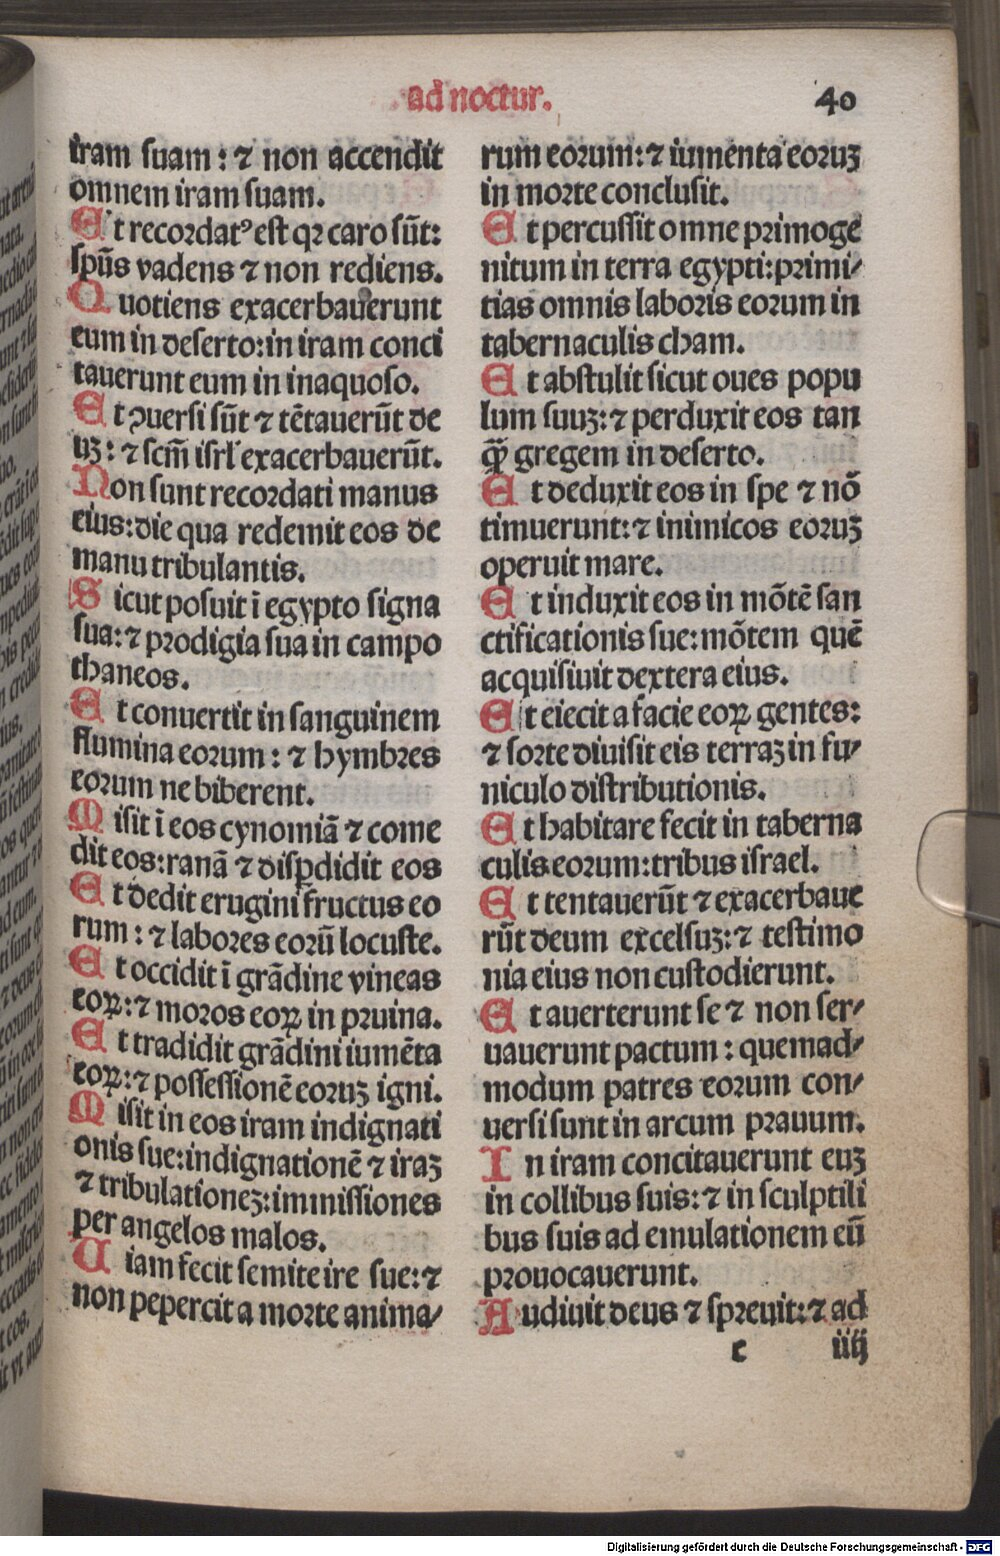 ad noctur.
40
iram suam : ⁊ non accendit
omnem iram suam.
Et recordatꝰ est qꝛ caro sūt:
spūs vadens ⁊ non rediens.
Quotiens exacerbauerunt
eum in deserto: in iram conci
tauerunt eum in inaquoso.
Et ꝯuersi sūt ⁊ tētauerūt de
uꝫ : ⁊ scm̄ isrl' exacerbauerūt.
Non sunt recordati manus
eius: die qua redemit eos de
manu tribulantis.
Sicut posuit ī egypto signa
sua: ⁊ prodigia sua in campo
thaneos.
Et conuertit in sanguinem
flumina eorum : ⁊ hymbres
eorum ne biberent.
Misit ī eos cynomiā ⁊ come
dit eos: ranā ⁊ disꝑdidit eos
Et dedit erugini fructus eo
rum : ⁊ labores eorū locuste.
Et occidit ī grādine vineas
eoꝝ: ⁊ moros eoꝝ in pruina.
Et tradidit grādini iumēta
eoꝝ: ⁊ possessionē eoruꝫ igni.
Misit in eos iram indignati
onis sue: indignationē ⁊ iraꝫ
⁊ tribulationeꝫ: immissiones
per angelos malos.
Uiam fecit semite ire sue: ⁊
non pepercit a morte anima⸗
rum eorum: ⁊ iumenta eoruꝫ
in morte conclusit.
Et percussit omne primoge
nitum in terra egypti: primi⸗
tias omnis laboris eorum in
tabernaculis cham.
Et abstulit sicut oues popu
lum suuꝫ: ⁊ perduxit eos tan
qꝫ̄ gregem in deserto.
Et deduxit eos in spe ⁊ nō
timuerunt: ⁊ inimicos eoruꝫ
operuit mare.
Et induxit eos in mōtē san
ctificationis sue: mōtem quē
acquisiuit dextera eius.
Et eiecit a facie eoꝝ gentes:
⁊ sorte diuisit eis terraꝫ in fu⸗
niculo distributionis.
Et habitare fecit in taberna
culis eorum: tribus israel.
Et tentauerūt ⁊ exacerbaue
rūt deum excelsuꝫ: ⁊ testimo
nia eius non custodierunt.
Et auerterunt se ⁊ non ser⸗
uauerunt pactum : quemad⸗
modum patres eorum con⸗
uersi sunt in arcum prauum.
In iram concitauerunt euꝫ
in collibus suis: ⁊ in sculptili
bus suis ad emulationem eū
prouocauerunt.
Audiuit deus ⁊ spreuit: ⁊ ad
e iiij
Digitalisierung gefördert durch die Deutsche Forschungsgemeinschaft - DFG